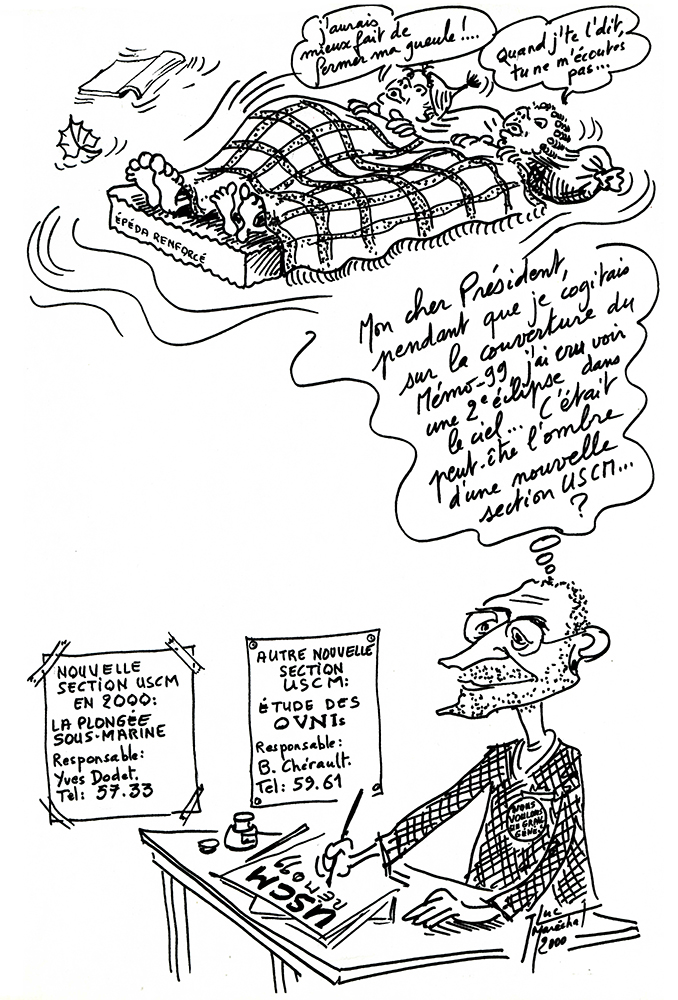 j'aurais
mieux fait de
fermer ma gueule !...
Quand j'te l'dit,
tu ne m'écoutes
pas...
ÉPÉDA RENFORCÉ
Mon cher Président,
pendant que je cogitais
sur la couverture du
Mémo-99 j'ai cru voir
une 2e éclipse dans
le ciel... C'était
peut-être l'ombre
d'une nouvelle
section USCM...
?
NOUVELLE
SECTION USCM
EN 2000:
LA PLONGÉE
SOUS-MARINE
Responsable:
Yves Dodet.
Tél: 57.33
AUTRE NOUVELLE
SECTION
USCM:
ÉTUDE DES
OVNIs
Responsable:
B. Chérault.
Tél: 59.61
NOUS
VOULONS
USCM
MEMO 99
Luc
Maréchal
2000